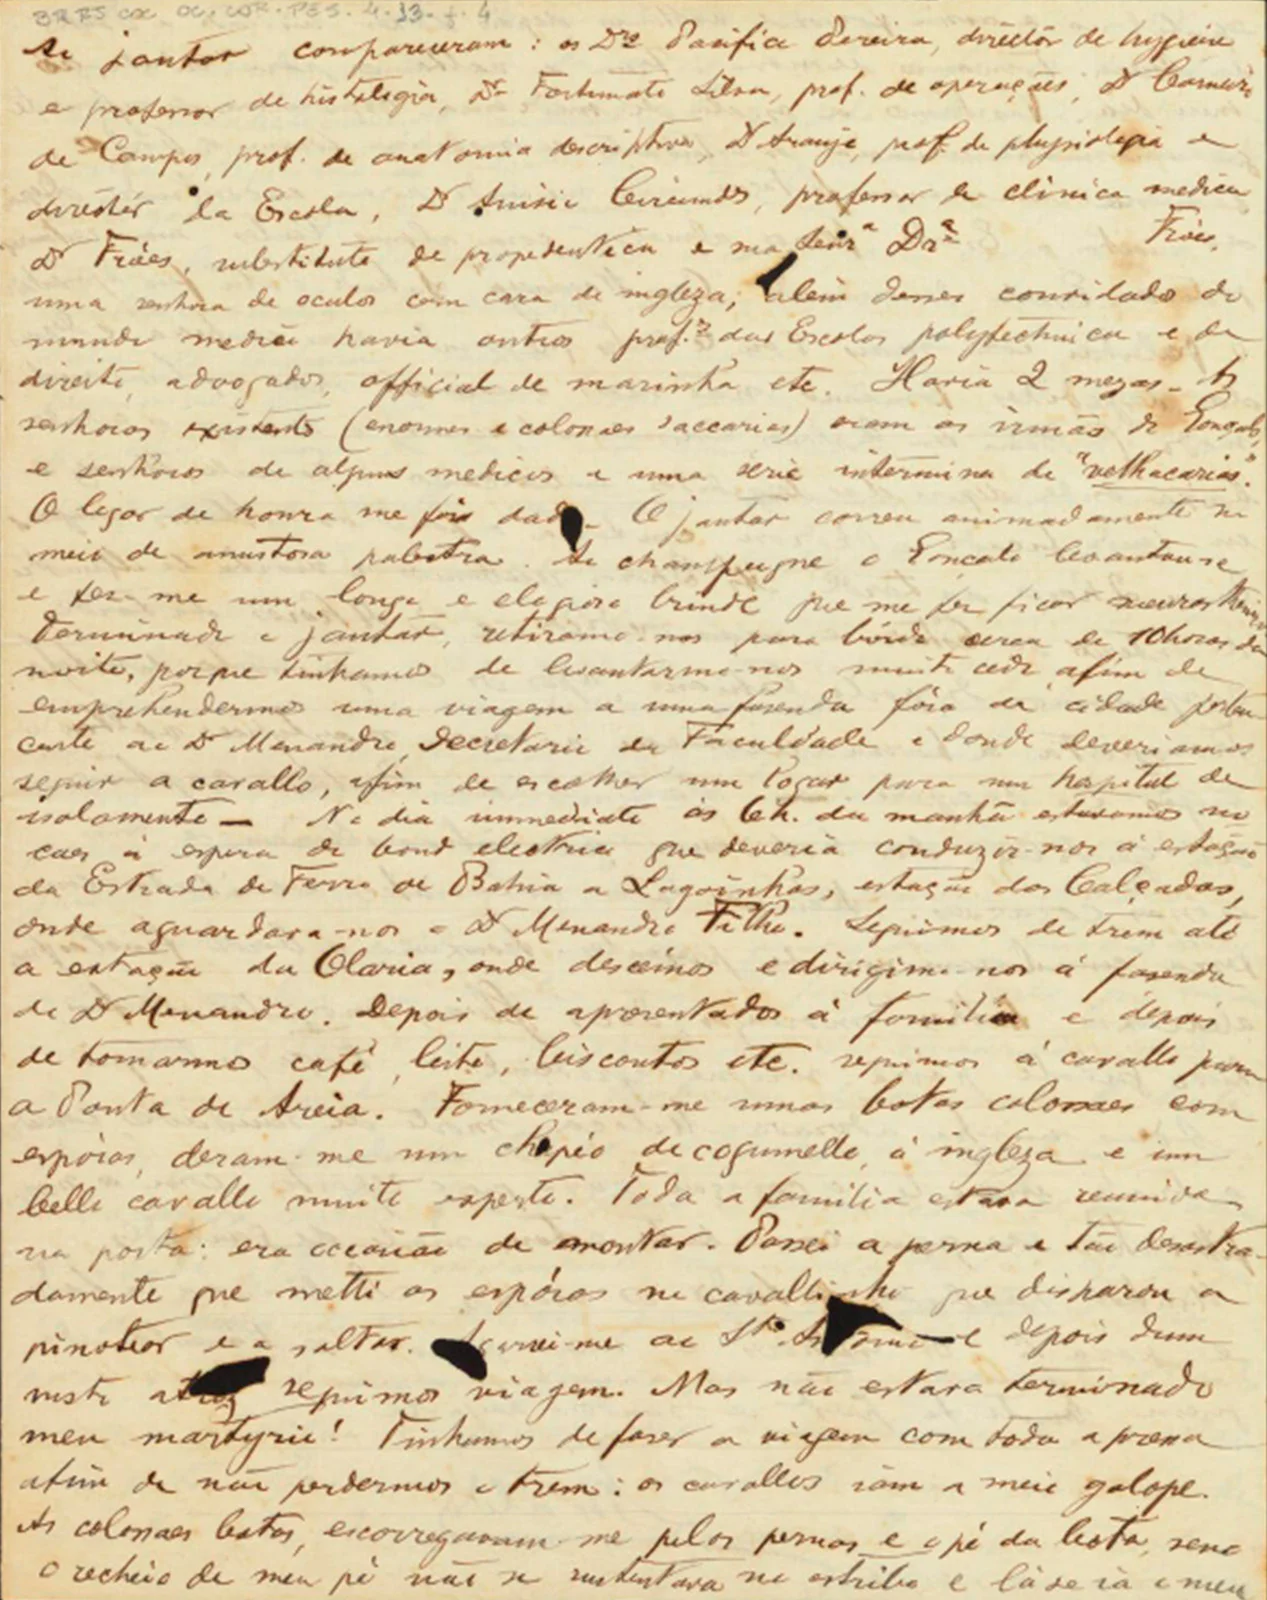 BR RJ COC OC. COR. PES. 4. 13. f. 4
Ao jantar compareceram: os Drs Pacifico Pereira, director de hygiene
e professor de histologia, Dr Fortunato Silva, prof. de operações, Dr Carneiro
de Campos, prof. de anatomia descriptiva, Dr Araujo, prof. de physiologia e
diréctór da Escola, Dr Anisio Circundes, professor de clinica medica
Dr Fróes, substituto de propedeutica e sua Senra Dra Fróes,
uma senhora de oculos com cara de ingleza; alem desses convidados do
mundo medico havia outros profs das Escolas polytechnica e de
direito, advogados, official de marinha etc. Havia 2 mezas. As
senhoras existents (enormes e colossaes saccarias) eram as irmãs do Gonçalo,
e senhoras de alguns medicos e uma serie intermina de "velhacarias".
O logar de honra me foi dado. O jantar correu animadamente no
meio de amistosa palestra. Ao champagne o Gonçalo levantou-se
e fez-me um longo e elogioso brinde que me fez ficar
Terminado o jantar, retiramo-nos para bórdo cerca de 10 horas da
noite, porque tinhamos de levantarmo-nos muito cedo afim de
emprehendermos uma viagem a uma fazenda fóra da cidade
ao Dr Menandro, Secretario da Faculdade e donde deveriamos
seguir a cavallo, afim de escolher um logar para um hospital de
isolamento — No dia immediato ás 6h. da manhã estavamos no
caes á espera do bond electrico que deveria conduzir-nos á estação
da Estrada de Ferro da Bahia a Lagoinhas, estação dos Calçadas,
onde aguardava-nos o Dr Menandro Filho. Seguimos de trem até
a estação da Olaria, onde descemos e dirigimo-nos á fazenda
do Dr Menandro. Depois de apresentados á familia e depois
de tomarmos café, leite, biscoutos etc. seguimos á cavallo para
a Ponta de Areia. Forneceram-me umas botas colossaes com
espóras, deram-me um chapéo de cogumello, á ingleza e um
bello cavallo muito esperto. Toda a familia estava reunida
na porta: era occasião de montar. Passei a perna e tão desastra-
damente que metti as espóras no cavallinho que disparou a
pinotear e a saltar. Agarrei-me ao Sto Antonio e depois dum
susto atroz seguimos viagem. Mas não estava terminado
meu martyrio! Tinhamos de fazer a viagem com toda a pressa
afim de não perdermos o trem: os cavallos iam a meio galope.
As colossaes botas, escorregavam-me pelas pernas e o pé da bota, sem
o recheio de meu pé não se sustentava no estribo e lá se ia o meu